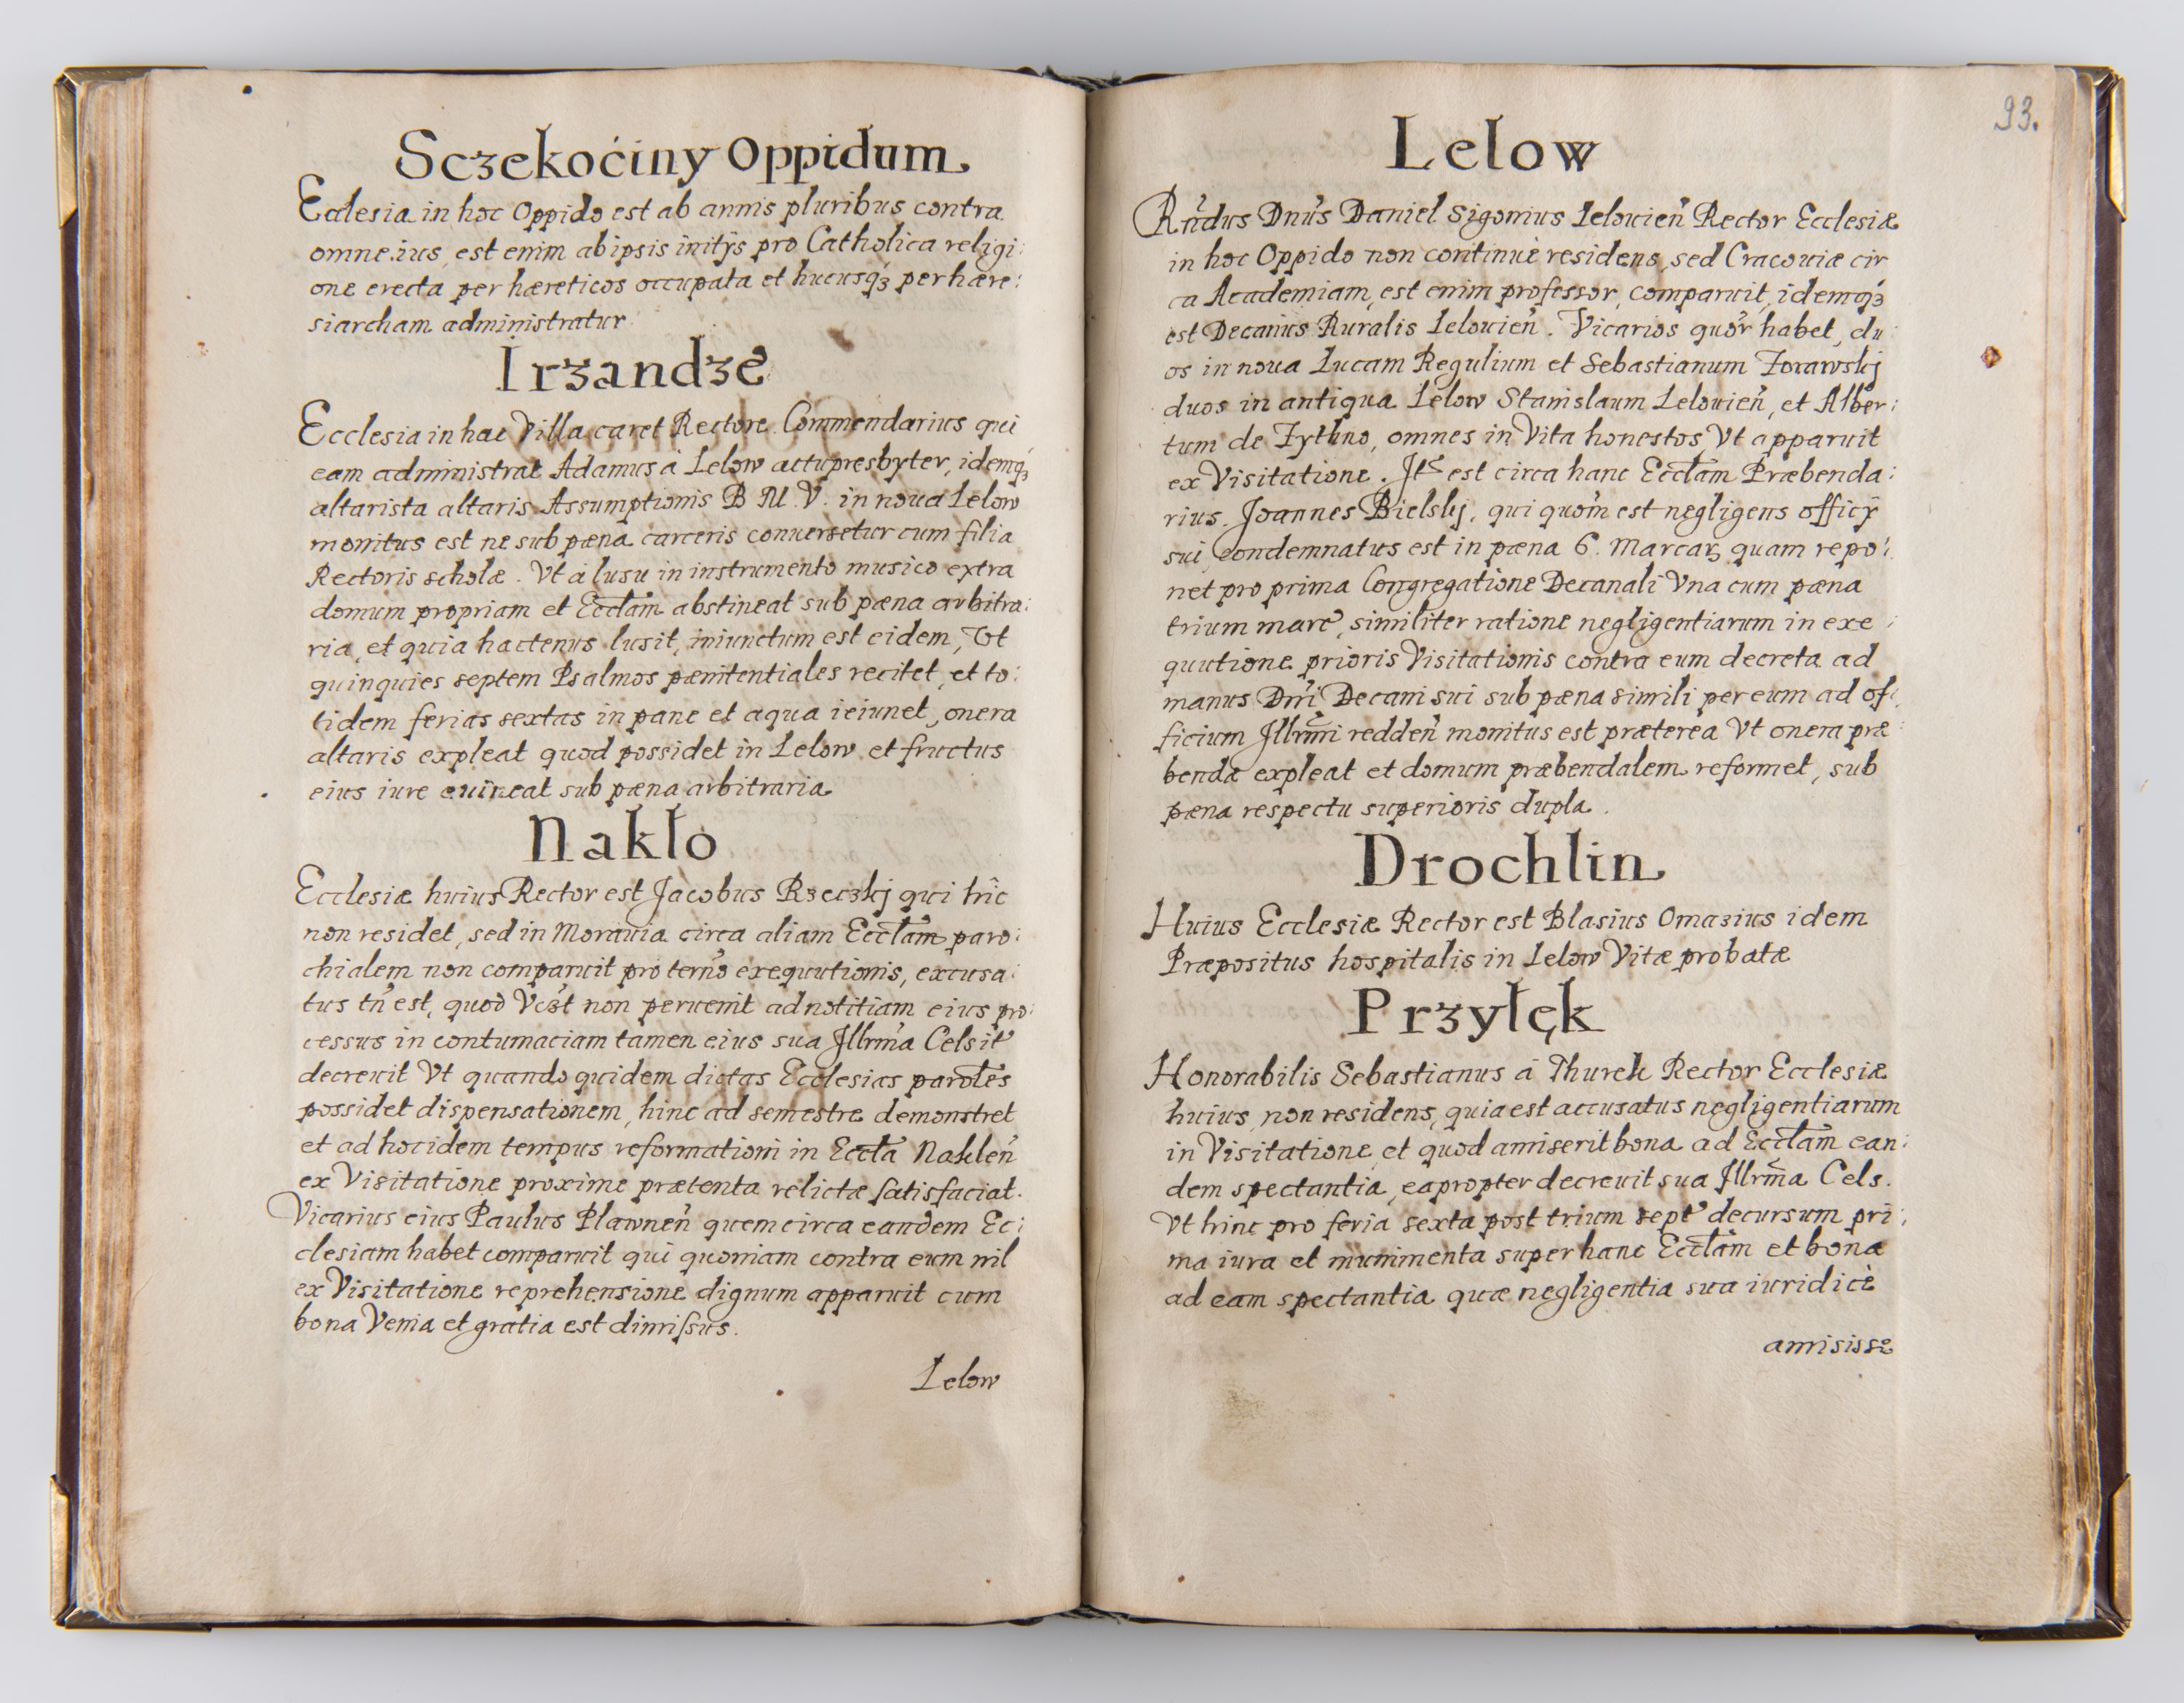 Sczekoćiny Oppidum
Ecclesia in hoc Oppido est ab annis pluribus contra
omne ius, est enim ab ipsis initijs pro Catholica religi:
one erecta per hæreticos occupata et hucusq́ꝫ per hære:
siarcham administratur.
Irzandze
Ecclesia in hac Villa caret Rectore. Commendarius qui
eam administrat Adamus á Lelow actu presbyter, idemq́ꝫ
altarista altaris Assumptionis B M. V. in noua Lelow
monitus est ne sub pæna carceris conuersetur cum filia
Rectoris scholæ. Vt á lusu in instrumento musico extra
domum propriam et Eccl̃am abstineat sub pæna arbitra:
ria, et quia hactenus lusit, iniunctum est eidem, Vt
quinquies septem Psalmos pænitentiales recitet, et to:
tidem ferias sextas in pane et aqua ieiunet, onera
altaris expleat quod possidet in Lelow et fructus
eius iure euincat sub pæna arbitraria
Nakło
Ecclesiæ huius Rector est Jacobus Rzeczkj qui hic
non residet, sed in Morauia circa aliam Eccl̃am paro:
chialem non comparuit pro term̃o exequutionis, excusa:
tus tñ est, quod non peruenit ad notitiam eius pro:
cessus in contumaciam tamen eius sua Jllrm̃a Celsit̃
decreuit Vt quando quidem dictas Ecclesias parol̃es
possidet dispensationem, hinc ad semestre demonstret
et ad hoc idem tempus reformationi in Eccl̃a Naklen̄
ex Visitatione proxime prætenta relictæ satisfaciat.
Vicarius eius Paulus Plawnen̄ quem circa eandem Ec:
clesiam habet comparuit qui quoniam contra eum nil
ex Visitatione reprehensione dignum apparuit cum
bona Venia et gratia est dimissus.
Lelow
93.
Lelow
Rñdus Dnũs Daniel Sigonius Lelouien̄ Rector Ecclesiæ
in hoc Oppido non continuè residens, sed Cracouiæ cir
ca Academiam, est enim professor, comparuit, idemq́ꝫ
est Decanus Ruralis Lelouien̄. Vicarios quor̃ habet, du:
os in noua Lucam Regulium et Sebastianum
duos in antiqua Lelow Stanislaum Lelouien̄, et Alber:
tum de omnes in Vita honestos Vt apparuit
ex Visitatione. Jt̃ est circa hanc Eccl̃am Præbenda:
rius Joannes Bielskj, qui quom̃ est negligens officij
sui, condemnatus est in pæna 6. Marcarꝫ quam repo:
net pro prima Congregatione Decanali Vna cum pæna
trium marc̃, similiter ratione negligentiarum in exe:
quutione prioris Visitationis contra eum decreta ad
manus Dñi Decani sui sub pæna simili per eum ad of:
ficium Jllrmi redden̄ monitus est præterea Vt onera præ:
bendæ expleat et domum præbendalem reformet, sub
pæna respectu superioris dupla.
Drochlin
Huius Ecclesiæ Rector est Blasius Omazius idem
Præpositus hospitalis in Lelow Vitæ probatæ
Przyłęk
Honorabilis Sebastianus á Thurek Rector Ecclesiæ
huius, non residens, quia est accusatus negligentiarum
in Visitatione, et quod amiserit bona ad Eccl̃am ean:
dem spectantia, eapropter decreuit sua Jllrm̃a Cels.
Vt hinc pro feria sexta post trium sept̃ decursum pri:
ma iura et munimenta super hanc Eccl̃am et bona
ad eam spectantia quæ negligentia sua iuridicè
amisisse